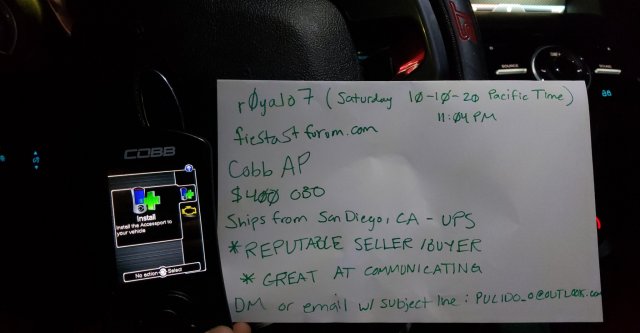 SOURCE
SOUND
r0yalo7 (Saturday 10-10-20 Pacific Time)
11:04 PM
fiestastforum.com
COBB
Cobb AP
$400 OBO
Install
Install the Accessport to
your vehicle
Ships from San Diego, CA - UPS
* REPUTABLE SELLER/BUYER
* GREAT AT COMMUNICATING
No action Select
DM or email w/ subject line: PULIDO_O@OUTLOOK.com